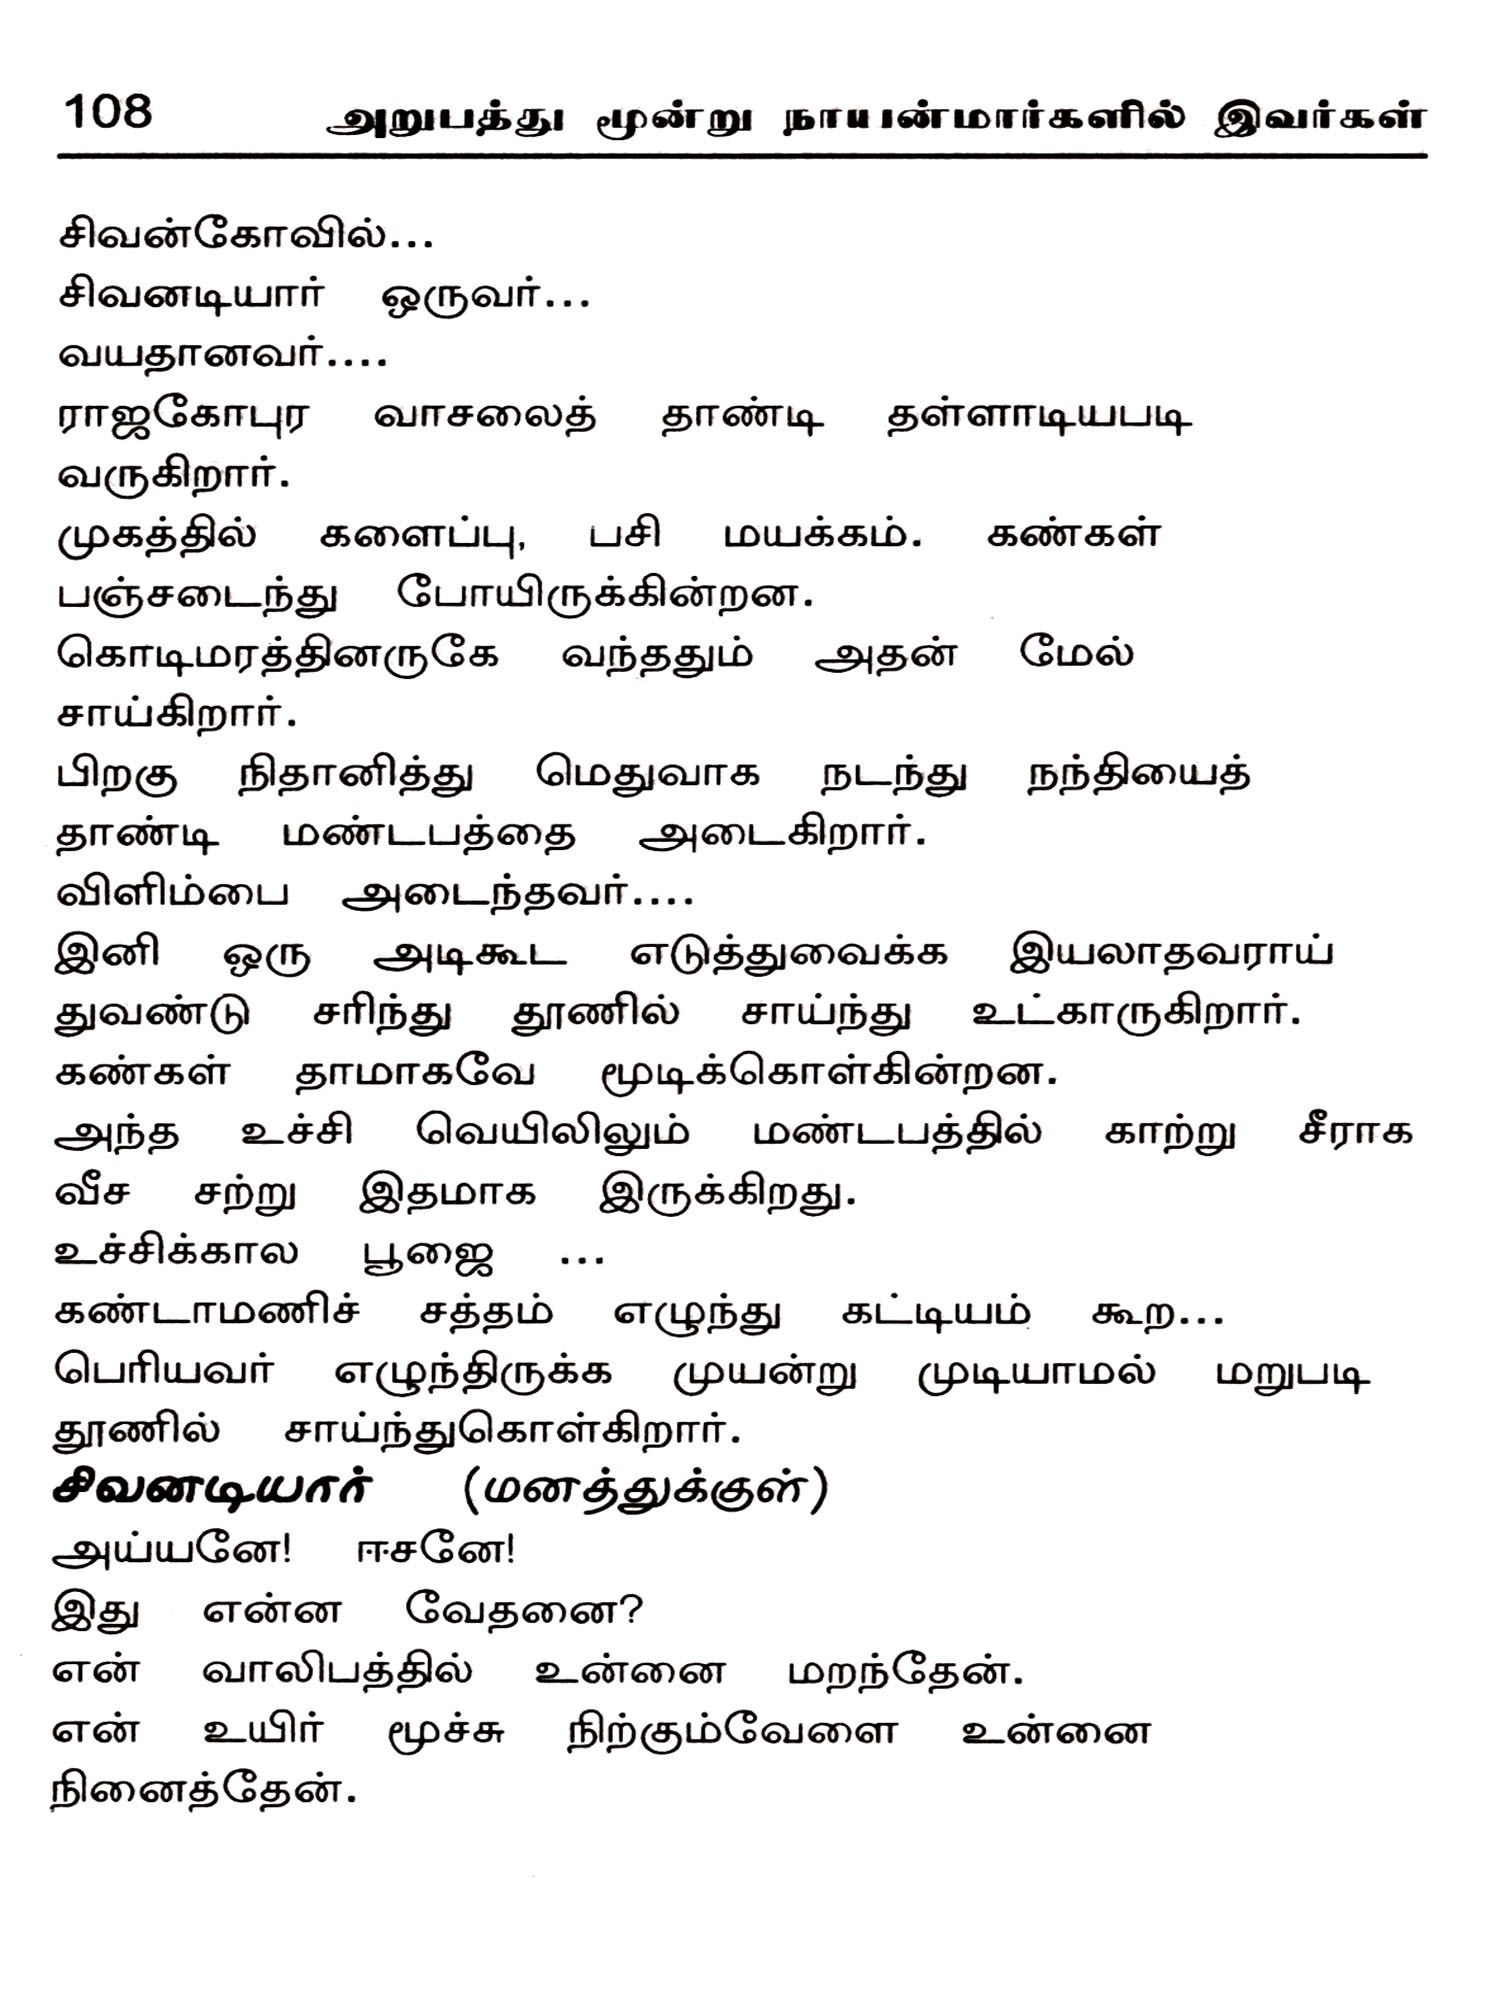 108 அறுபத்து மூன்று நாயன்மார்களில் இவர்கள்
சிவன்கோவில்...
சிவனடியார் ஒருவர்...
வயதானவர்....
ராஜகோபுர வாசலைத் தாண்டி தள்ளாடியபடி
வருகிறார்.
முகத்தில் களைப்பு, பசி மயக்கம். கண்கள்
பஞ்சடைந்து போயிருக்கின்றன.
கொடிமரத்தினருகே வந்ததும் அதன் மேல்
சாய்கிறார்.
பிறகு நிதானித்து மெதுவாக நடந்து நந்தியைத்
தாண்டி மண்டபத்தை அடைகிறார்.
விளிம்பை அடைந்தவர்....
இனி ஒரு அடிகூட எடுத்துவைக்க இயலாதவராய்
துவண்டு சரிந்து தூணில் சாய்ந்து உட்காருகிறார்.
கண்கள் தாமாகவே மூடிக்கொள்கின்றன.
அந்த உச்சி வெயிலிலும் மண்டபத்தில் காற்று சீராக
வீச சற்று இதமாக இருக்கிறது.
உச்சிக்கால பூஜை ...
கண்டாமணிச் சத்தம் எழுந்து கட்டியம் கூற...
பெரியவர் எழுந்திருக்க முயன்று முடியாமல் மறுபடி
தூணில் சாய்ந்துகொள்கிறார்.
சிவனடியார் (மனத்துக்குள்)
அய்யனே! ஈசனே!
இது என்ன வேதனை?
என் வாலிபத்தில் உன்னை மறந்தேன்.
என் உயிர் மூச்சு நிற்கும்வேளை உன்னை
நினைத்தேன்.